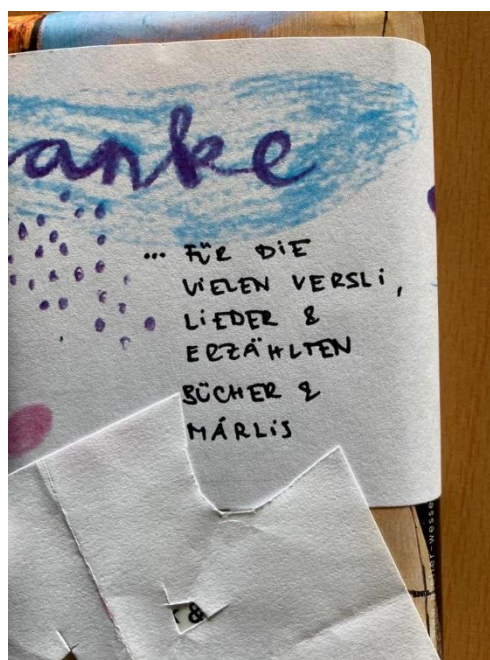 anke
... FÜR DIE
VIELEN VERSLI,
LIEDER &
ERZÄHLTEN
BÜCHER &
MÄRLIS
&